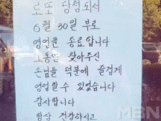 로또 당첨되서
6월 30일 부로
영업을 종료합니다
그동안 찾아주신
손님들 덕분에 즐겁게
영업할 수 있었습니다
감사합니다
항상 건강하시고
MBN